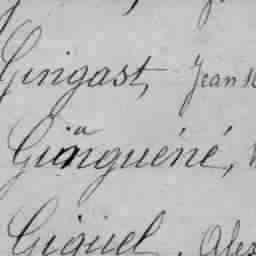 Gingast, Jean
Ginguéné,
Giquel, Alex